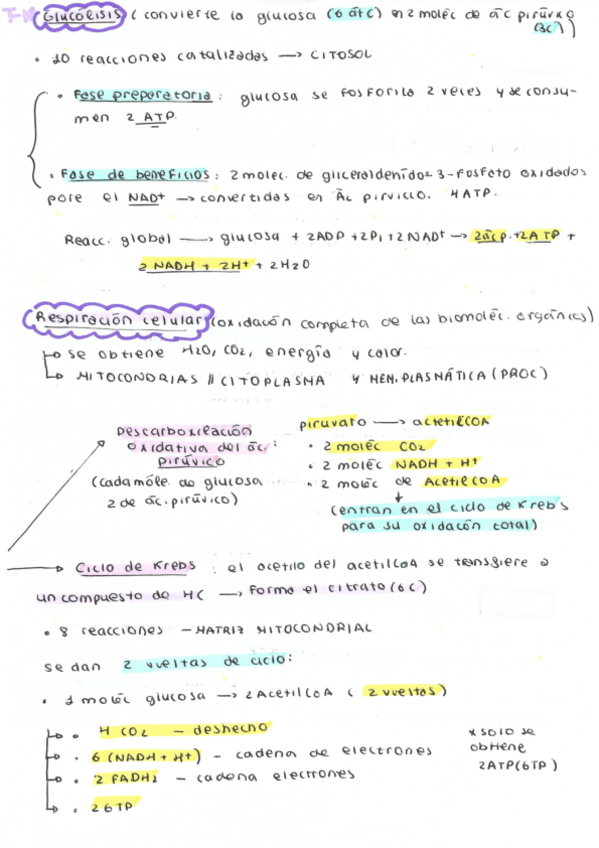 GLUCÓLISIS (convierte la glucosa (6 átC) en 2 moléc de ác pirúvico
(3C))
• 10 reacciones catalizadas → CITOSOL
• Fase preparatoria: glucosa se fosforila 2 veces y se consu-
men 2 ATP.
• Fase de beneficios: 2 molec. de gliceraldehído-3-fosfato oxidados
pore el NAD+ → convertidas en Ác pirvico. 4ATP.
Reacc. global → glucosa + 2ADP + 2Pi + 2NAD+ → 2ácp. + 2ATP +
2 NADH + 2H+ + 2H2O
Respiración celular (oxidación completa de las biomoléc. orgánicas)
→ se obtiene H2O, CO2, energía y calor.
→ MITOCONDRIAS // CITOPLASMA y MEM. PLASMÁTICA (PROC)
Descarboxilación
oxidativa del ác.
pirúvico
(cada moléc. de glucosa
2 de ác. pirúvico)
:
piruvato → acetilCOA
• 2 moléc CO2
• 2 moléc NADH + H+
• 2 moléc de AcetilCOA
↓
(entran en el ciclo de Krebs
para su oxidación total)
→ Ciclo de Krebs: el acetilo del acetilCoA se transfiere a
un compuesto de 4C → forma el citrato (6C)
• 8 reacciones – MATRIZ MITOCONDRIAL
se dan 2 vueltas de ciclo:
• 1 moléc glucosa → 2 AcetilCOA (2 vueltas)
→ • 4 CO2 – deshecho
→ • 6 (NADH + H+) – cadena de electrones
→ • 2 FADH2 – cadena electrones
→ • 2 GTP
* solo se
obtiene
2ATP (GTP)